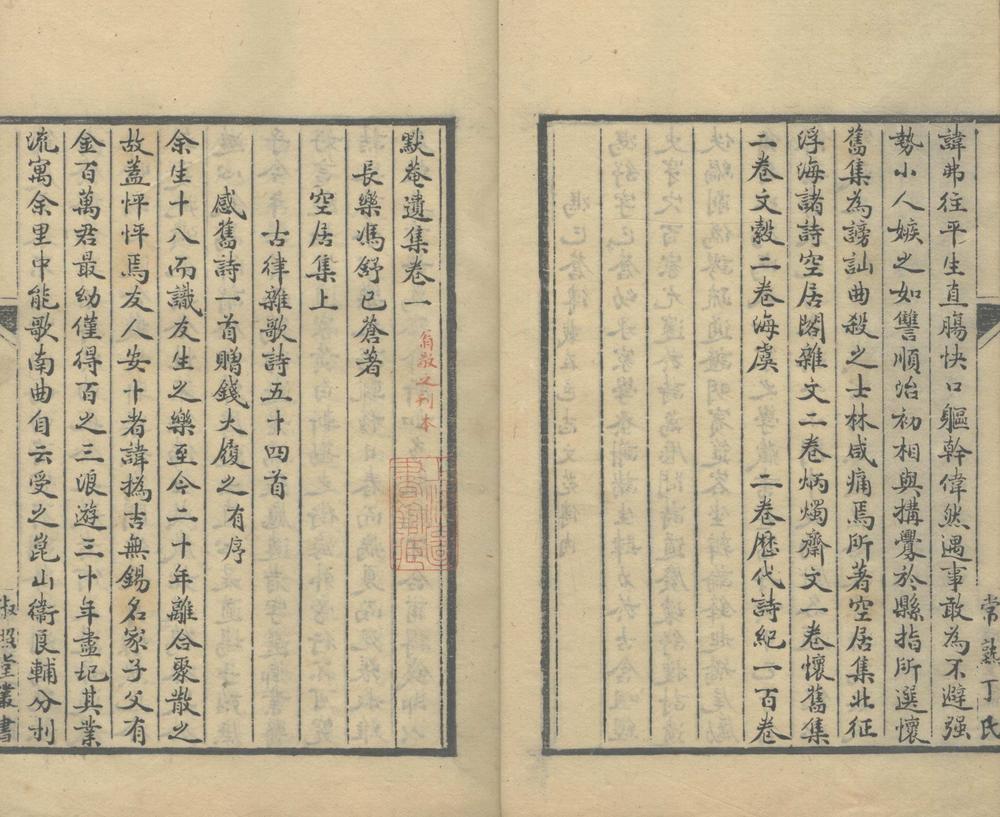 常熟丁氏
諱弗往平生直腸快口軀幹偉然遇事敢為不避强
勢小人嫉之如讐順治初相與搆釁於縣指所選懷
舊集為謗訕曲殺之士林咸痛焉所著空居集北征
浮海諸詩空居閣雜文二卷炳燭齋文一卷懷舊集
二卷文縠二卷海虞 二卷歷代詩紀一百卷
默菴遺集卷一
翁敬之刊本
長樂馮舒已蒼著
空居集上
古律雜歌詩五十四首
感舊詩一首贈錢大履之有序
余生十八而識友生之樂至今二十年離合聚散之
故蓋怦怦焉友人安十者諱撝吉無錫名家子父有
金百萬君最幼僅得百之三浪遊三十年盡圮其業
流寓余里中能歌南曲自云受之崑山衞良輔分刌
淑照堂叢書